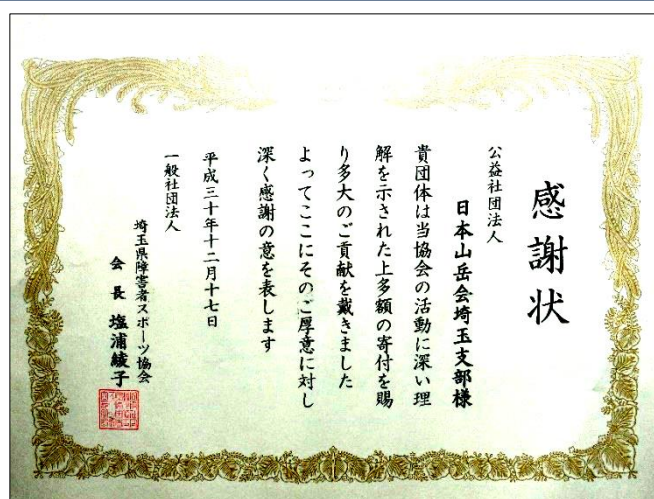 感謝状
公益社団法人
日本山岳会埼玉支部様
貴団体は当協会の活動に深い理
解を示された上多額の寄付を賜
り多大のご貢献を戴きました
よってここにそのご厚意に対し
深く感謝の意を表します
平成三十年十二月十七日
一般社団法人
埼玉県障害者スポーツ協会
会長 塩浦綾子